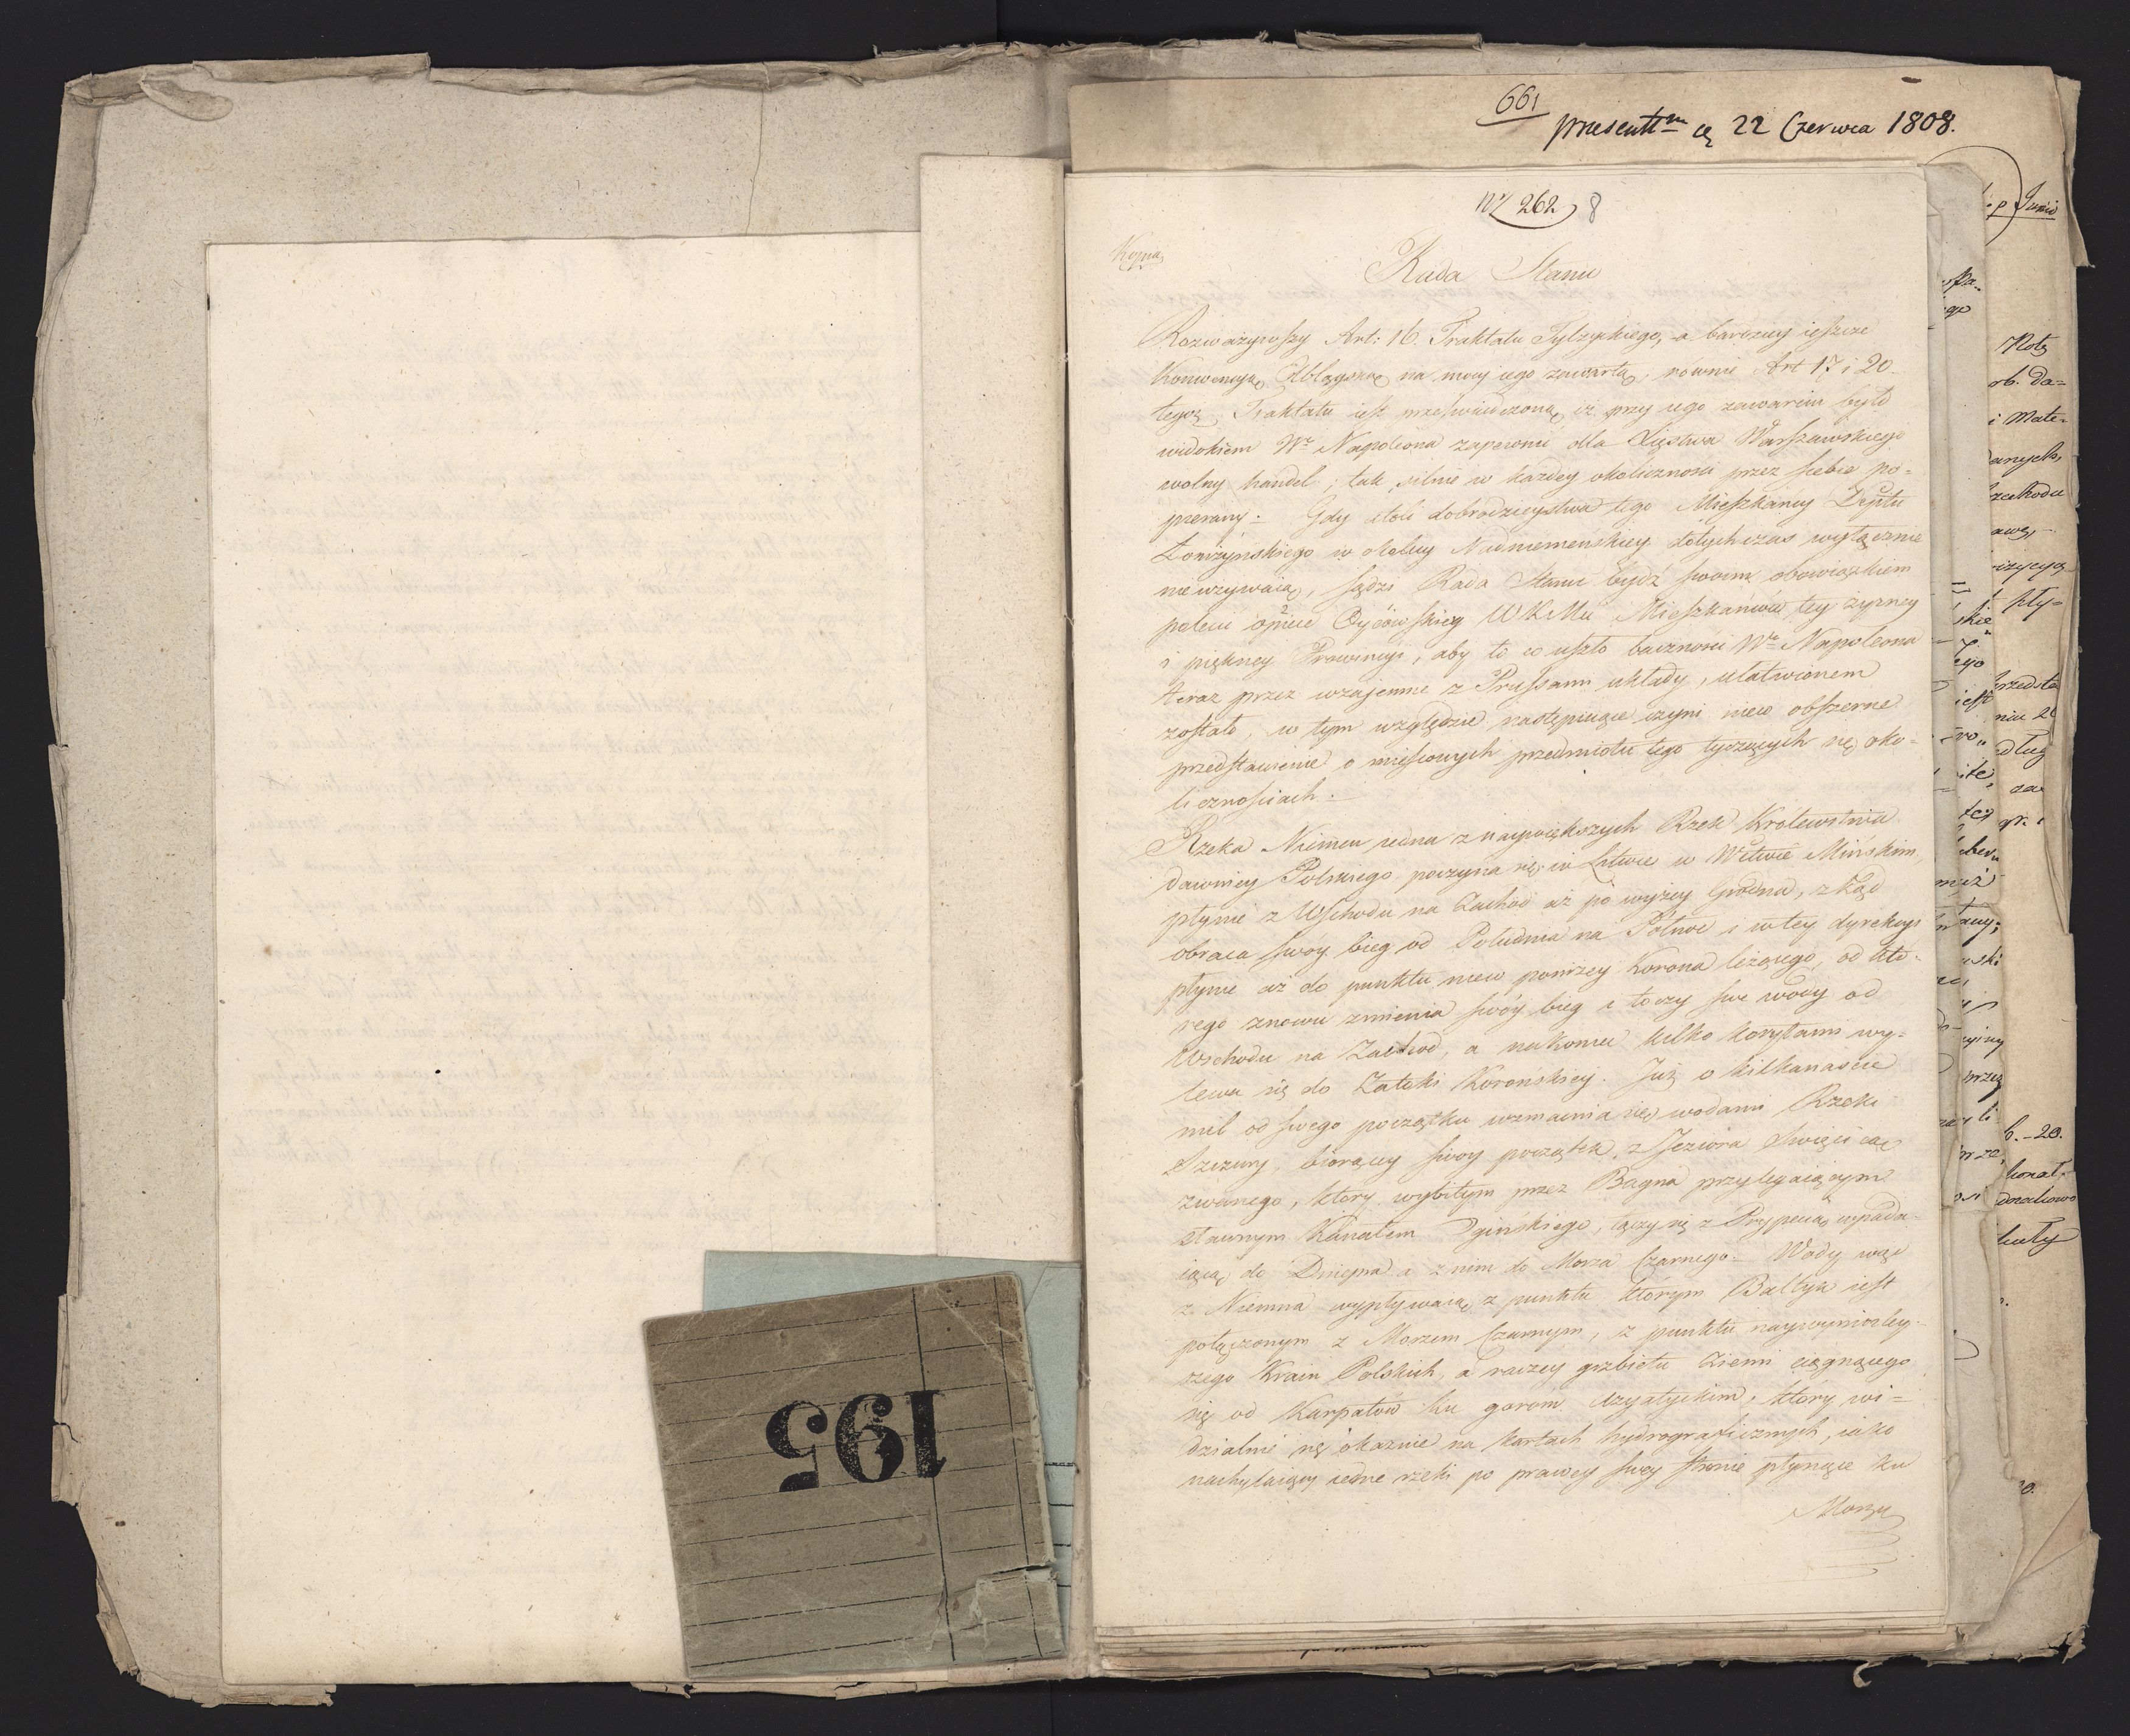 661
presentt^m d 22 Czerwca 1808.
N^r 262 8
Kopia
Rada Stanu
Rozważywszy Art: 16. Traktatu Tylzyckiego, a barziey ieszcze
Konwencyą Elblągską na mocy iego zawartą, równie Art 17 i 20
tegoż Traktatu iest przeświadczoną, iż przy iego zawarciu było
widokiem W^o Napoleona zapewnić dla Xięstwa Warszawskiego
wolny handel; tak silnie w każdey okoliczności przez siebie po=
pierany. Gdy atoli dobrodzieystwa tego Mieszkańcy Dptu
Łomżyńskiego w okolicy Nadniemeńskiey dotychczas wyłącznie
nieużywaią, sądzi Rada Stanu bydź swoim obowiązkiem
polecić opiece Oycowskiey WKMci Mieszkańców tey żyzney
i piękney Prowincyi, aby to co uszło baczności W^o Napoleona
teraz przez wzajemne z Prussami układy, ułatwionem
zostało, w tym względzie następuiące czyni nieco obszerne
przedstawienie o mieyscowych przedmiotu tego tyczących się oko=
licznościach.
Rzeka Niemen iedna z naywiększych Rzek Królewstwa
dawniey Polskiego poczyna się w Litwie w Wdztwie Mińskim,
płynie z Wschodu na Zachód aż po wyżey Grodna, zkąd
obraca swóy bieg od Południa na Północ i w tey dyrekcyi
płynie aż do punktu nieco poniżey Kowna leżącego, od któ=
rego znowu zmienia swóy bieg i toczy swe wody od
Wschodu na Zachod, a nakoniec kilko korytami wy=
lewa się do Zatoki Kurońskiey. Już o kilkanaście
mil od swego początku wzmacnia się wodami Rzeki
Szczury, biorącey swoy początek z Jeziora Święcicą
zwanego, który wybitym przez Bagna przylegaiącym
sławnym Kanałem Ogińskiego, łączy się z Prypecią wpada=
iącą do Dniepra a z nim do Morza Czarnego. Wody więc
z Niemna wypływaią z punktu którym Baltyk iest
połączonym z Morzem Czarnym, z punktu naywyniosley=
szego Krain Polskich, a raczey grzbietu Ziemi ciągnącego
się od Karpatów ku górom Azyatyckim, który wi=
dzialnie się okazuie na kartach hydrograficznych, iako
nachylaiący iedne rzeki po prawey swey stronie płynące ku
Morzu
195
Junio
Notę
i Mate=
b. - 20.